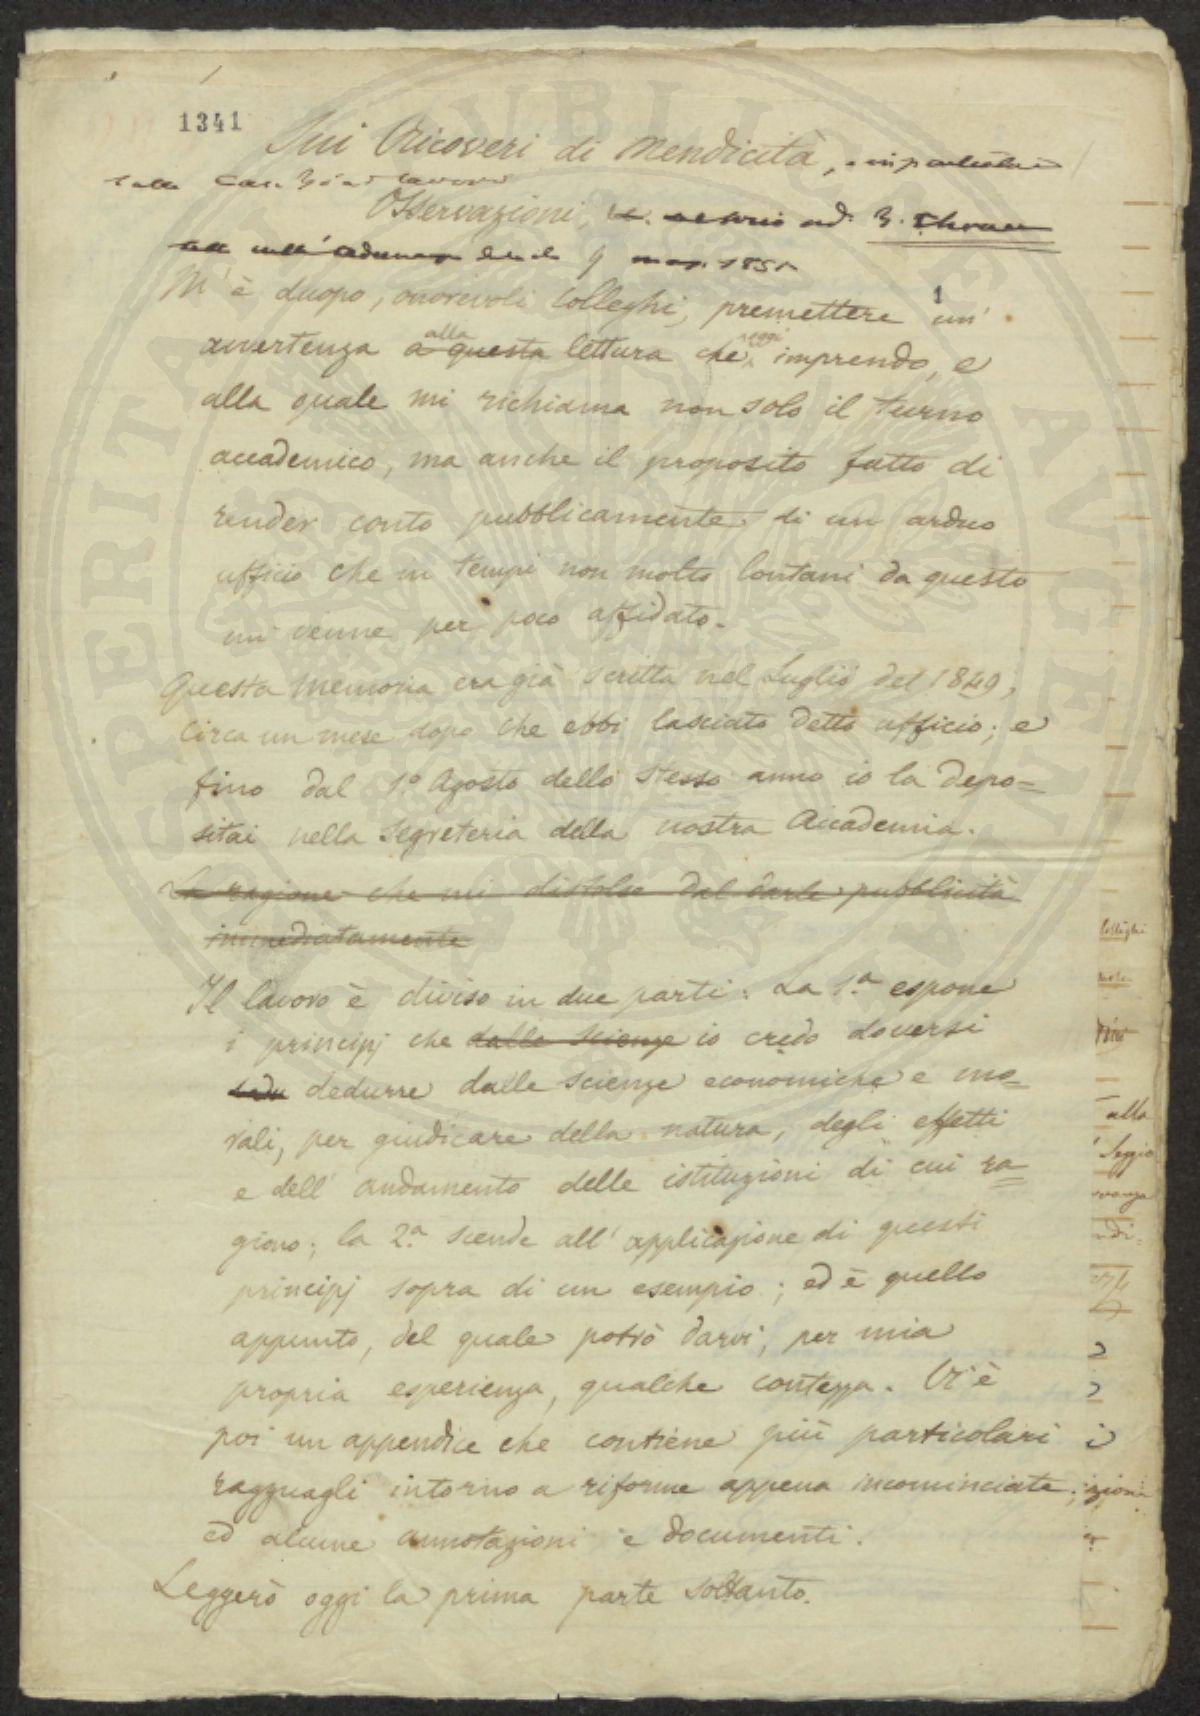 1341
Sui Ricoveri di Mendicità, e in particolare
sulla Casa di lavoro
Osservazioni,
9 mag. 1851
M'è duopo, onorevoli Colleghi, premettere un'
1
avvertenza a questa alla lettura che oggi imprendo, e
alla quale mi richiama non solo il turno
accademico, ma anche il proposito fatto di
render conto pubblicamente di un arduo
ufficio che in tempi non molto lontani da questo
mi venne per poco affidato.
Questa Memoria era già scritta nel Luglio del 1849,
circa un mese dopo che ebbi lasciato detto ufficio; e
fino dal 1.º Agosto dello stesso anno io la depo=
sitai nella Segreteria della nostra Accademia.
La ragione che mi distolse dal darle pubblicità
immediatamente
Il lavoro è diviso in due parti: La 1.ª espone
i principj che dalle scienze io credo doversi
dedurre dalle scienze economiche e mo=
rali, per giudicare della natura, degli effetti
e dell'andamento delle istituzioni di cui ra=
giono; la 2.ª scende all'applicazione di questi
principj sopra di un esempio; ed è quello
appunto, del quale potrò darvi, per mia
propria esperienza, qualche contezza. Vi è
poi un appendice che contiene più particolari
ragguagli intorno a riforme appena incominciate;
ed alcune annotazioni e documenti.
Leggerò oggi la prima parte soltanto.
Colleghi
alla
Seggio